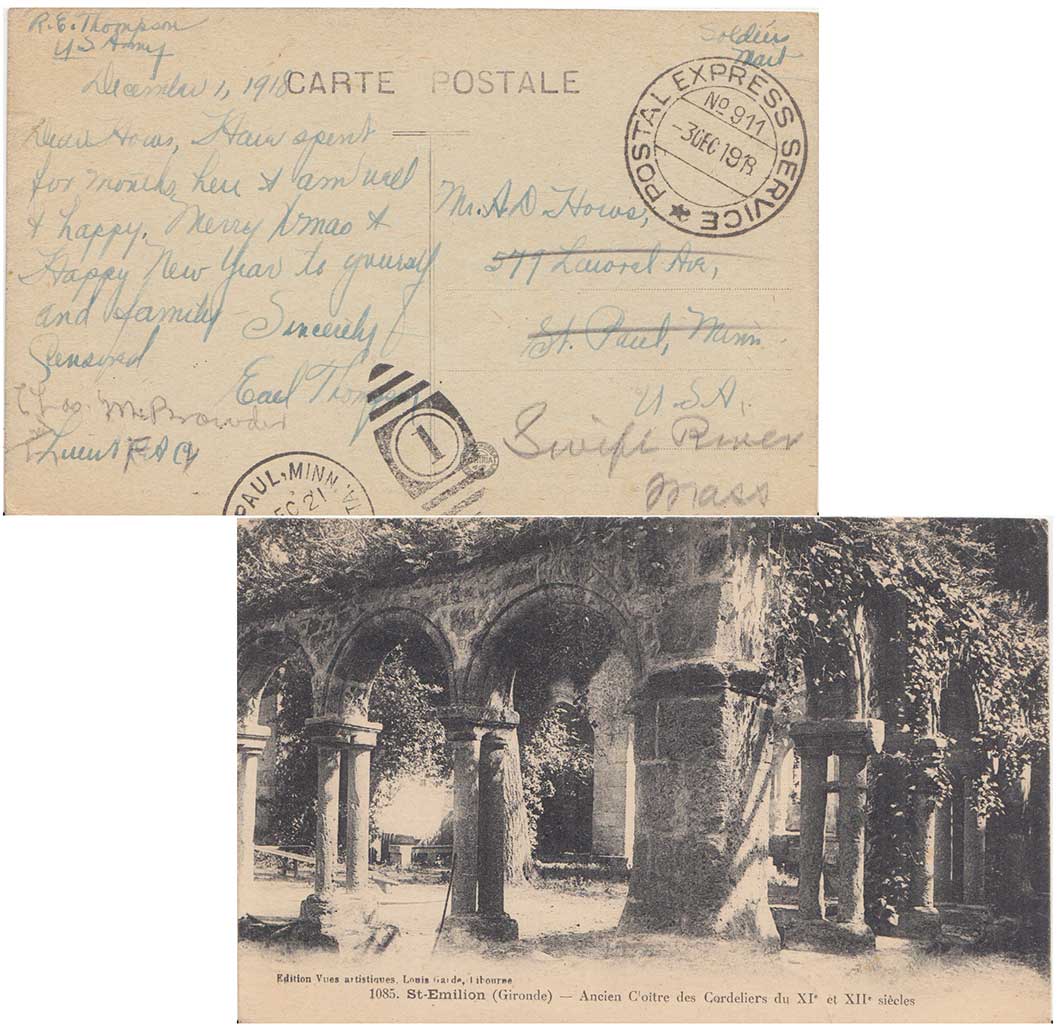 R.E. Thompson
US Army
Soldiers
Mail
December 1, 1918
CARTE POSTALE
POSTAL EXPRESS SERVICE
No 911
-3DEC 1918
Dear Hows, I Have spent
for months here & am well
& happy. Merry Xmas &
Happy New Year to yourself
and family Sincerely
Censored Earl Thompson
Chas. McBrowder
Lieut F A
Mr. A.D Hows,
579 Laurel Ave,
St. Paul, Minn.
U.S.A,
Swift River
Mass
1
PAUL, MINN.
EC 21
Edition Vues artistiques, Louis Garde, Libourne
1085. St-Emilion (Gironde) — Ancien C'oître des Cordeliers du XIe et XIIe siècles